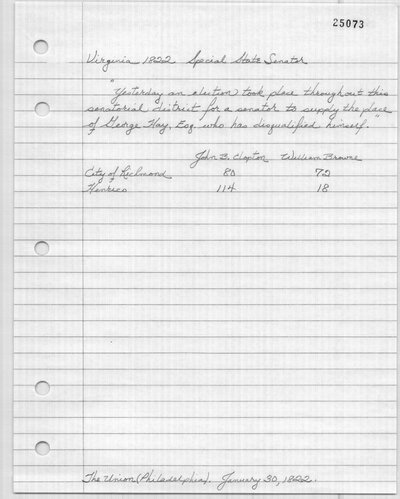 25073
Virginia 1822 Special State Senator
"Yesterday an election took place throughout this
senatorial district for a senator to supply the place
of George Hay, Esq. who has disqualified himself."
John B. Clopton William Browne
City of Richmond 80 72
Henrico 114 18
The Union (Philadelphia). January 30, 1822.